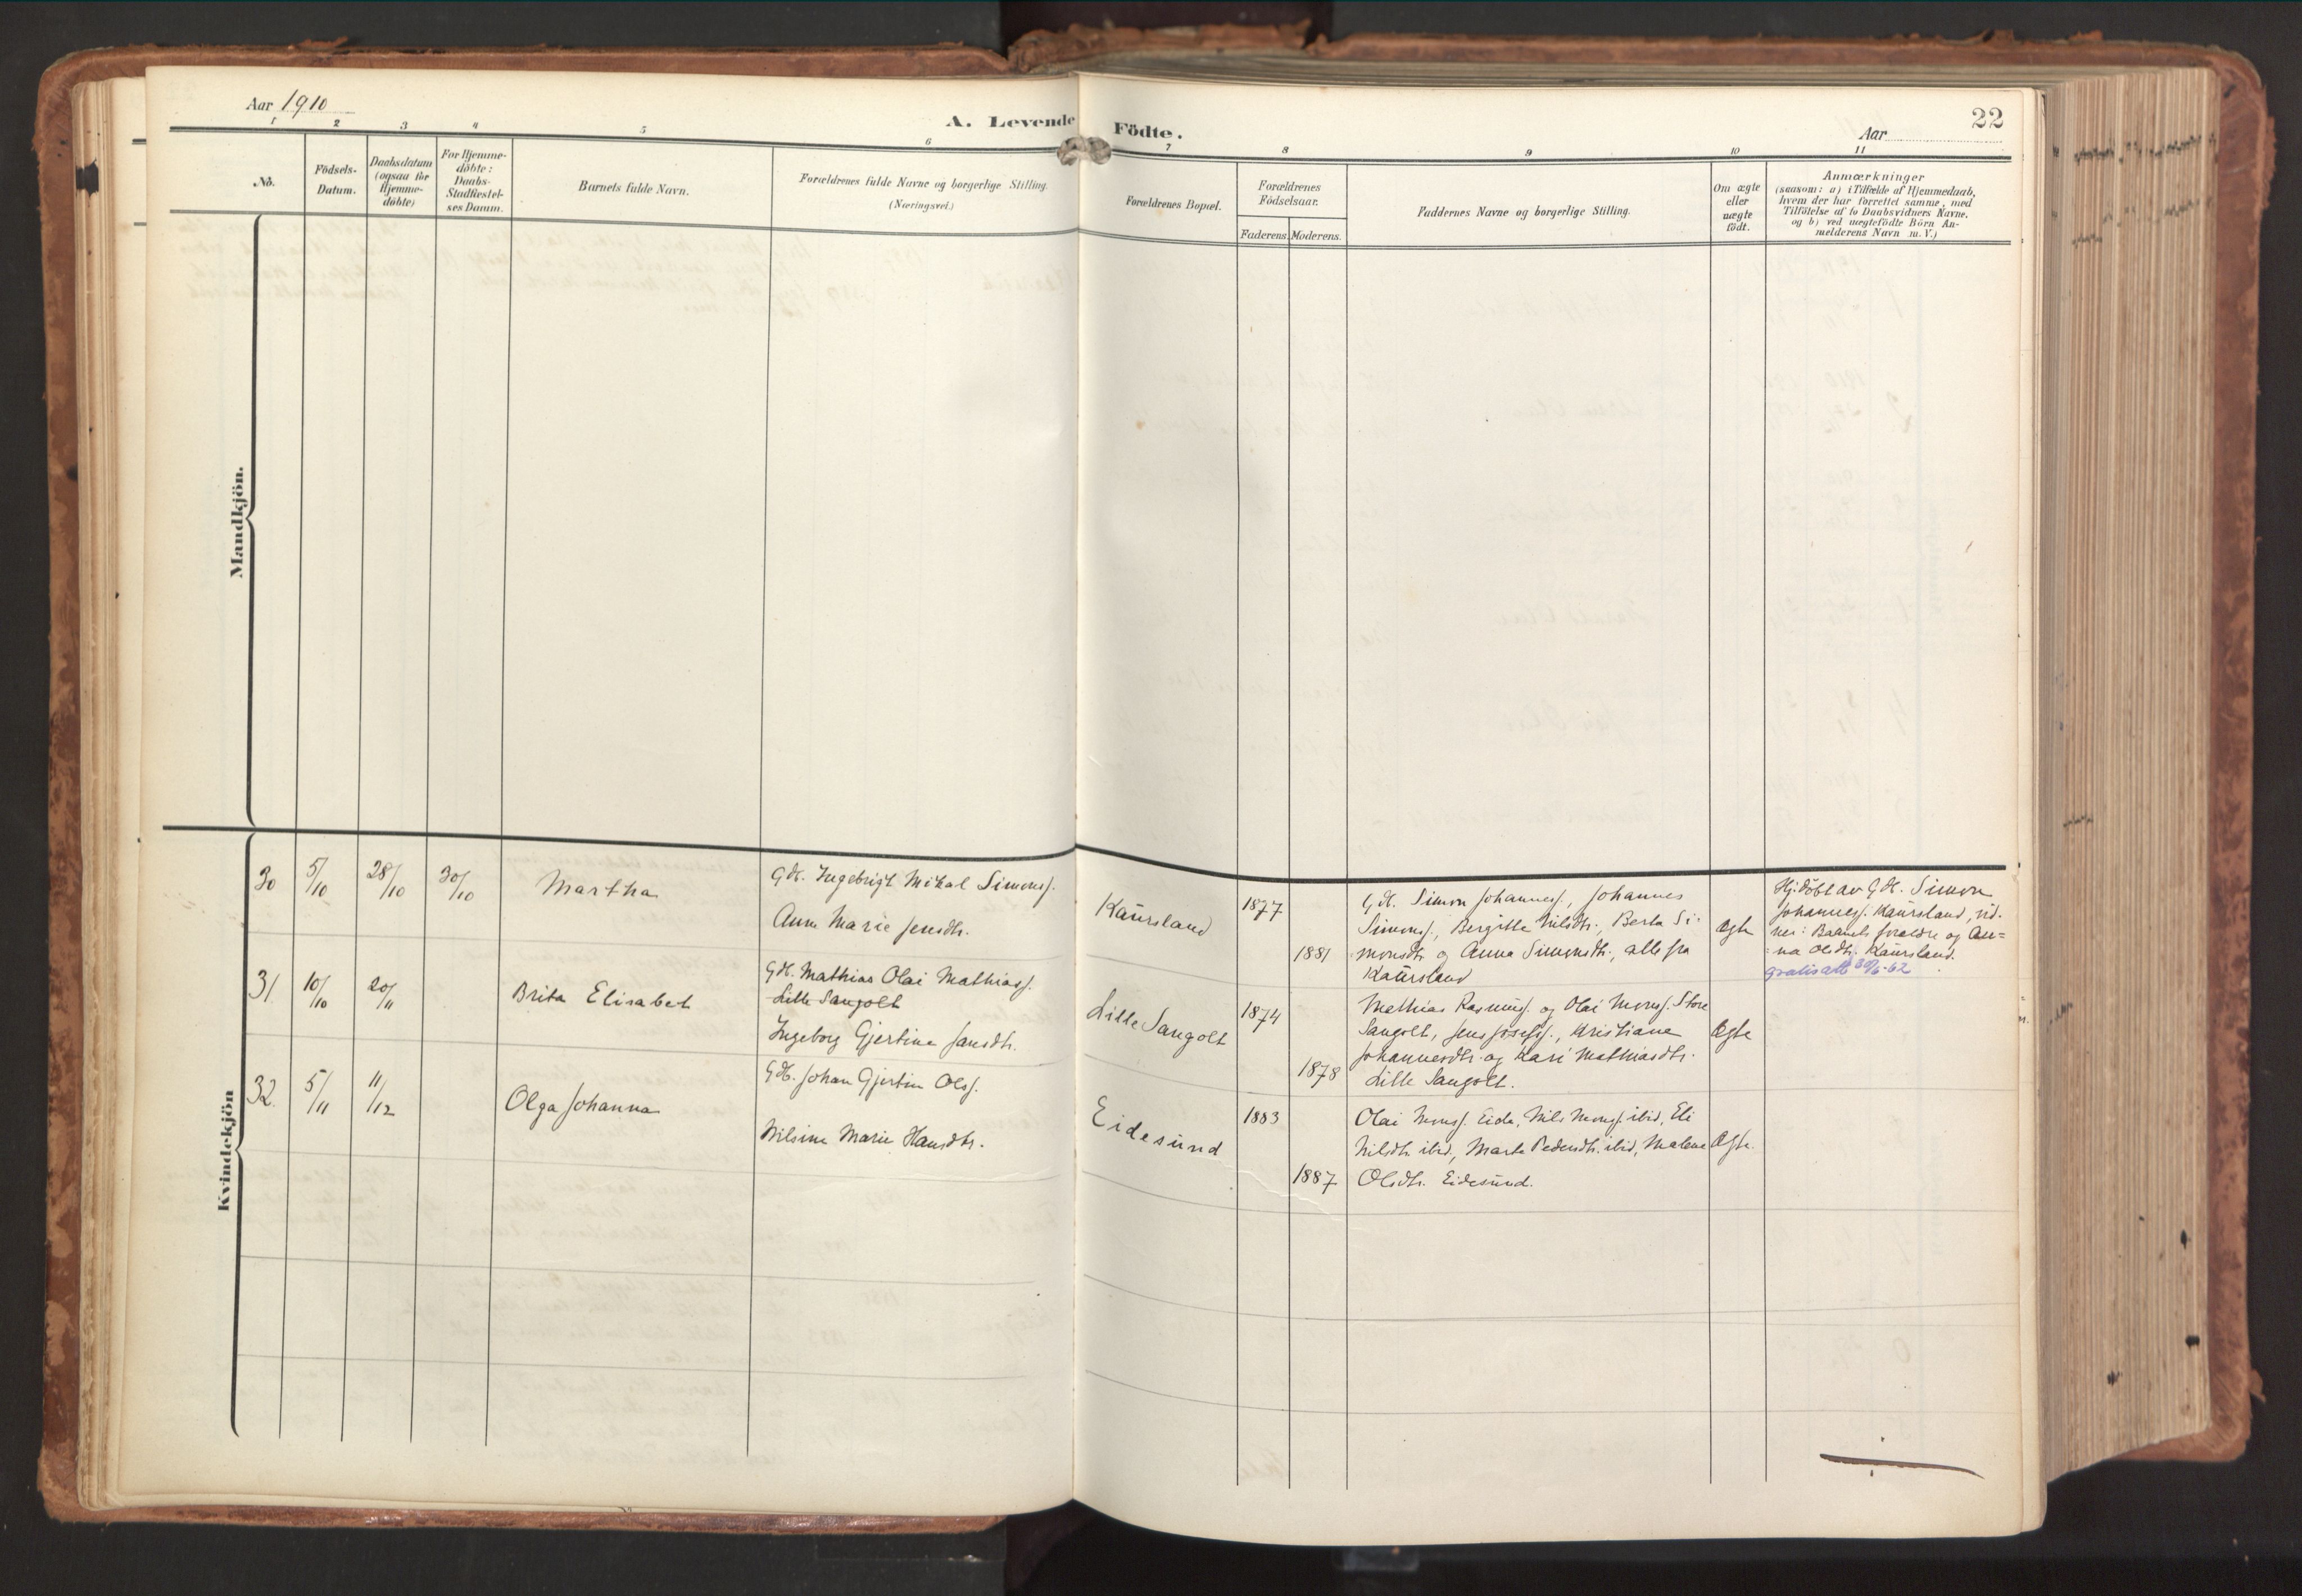 Aar 1910
A. Levende Födte.
Aar
22
1 2 3 4 5 6 7 8 9 10 11
No.
Födsels-
Datum.
Daabsdatum
(ogsaa for
Hjemme-
döbte)
For Hjemme-
döbte:
Daabs-
Stadfæstel-
ses Datum.
Barnets fulde Navn.
Forældrenes fulde Navne og borgerlige Stilling.
(Næringsvei.)
Forældrenes Bopæl.
Forældrenes
Födselsaar.
Faderens. Moderens.
Faddernes Navne og borgerlige Stilling.
Om ægte
eller
uægte
födt.
Anmærkninger
(saasom: a) i Tilfælde af Hjemmedaab,
hvem der har forrettet samme, med
Tilföielse af to Daabsvidners Navne,
og b) ved uægtefödte Börn An-
melderens Navn m. V.)
Mandkjön.
Kvindekjön
30 5/10 28/10 30/10 Martha
Gdk. Ingebrigt Mikal Simonss.
Anna Marie Jensdtr.
Kaursland
1877
1881
Gdk. Simon Johanness., Johannes
Simonss., Bergitte Nilsdtr., Berta Si-
monsdtr. og Anna Simonsdtr., alle fra
Kaursland
Ægte
Hj.döbt av Gdk. Simon
Johanness. Kaursland, vid-
ner: Barnets foreldre og An=
=na Olsdtr. Kaursland.
gratisatt 30/5-62
31 10/10 20/11 Brita Elisabet
Gdk. Mathias Olai Mathiass.
Lille Sangolt
Ingeborg Gjertine Jansdtr.
Lille Sangolt
1874
1878
Mathias Rasmuss. og Olai Monss. Store
Sangolt, Jens Josefss., Kristiane
Johannesdtr. og Kari Mathiasdtr.
Lille Sangolt.
Ægte
32. 5/11 11/12 Olga Johanna
Gdk. Johan Gjertin Olss.
Nilsine Marie Hansdtr.
Eidesund
1883
1887
Olai Monss. Eide, Nils Monss. ibid, Eli
Nilsdtr. ibid, Marta Pedersdtr. ibid, Malene
Olsdtr. Eidesund.
Ægte.